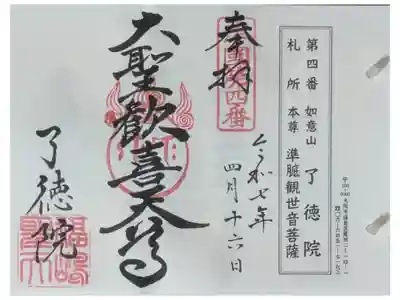 第四番 如意山 了徳院
札所本尊 準胝觀世音菩薩
奉拝
令和七年
四月十六日
大聖歓喜天尊
了徳院